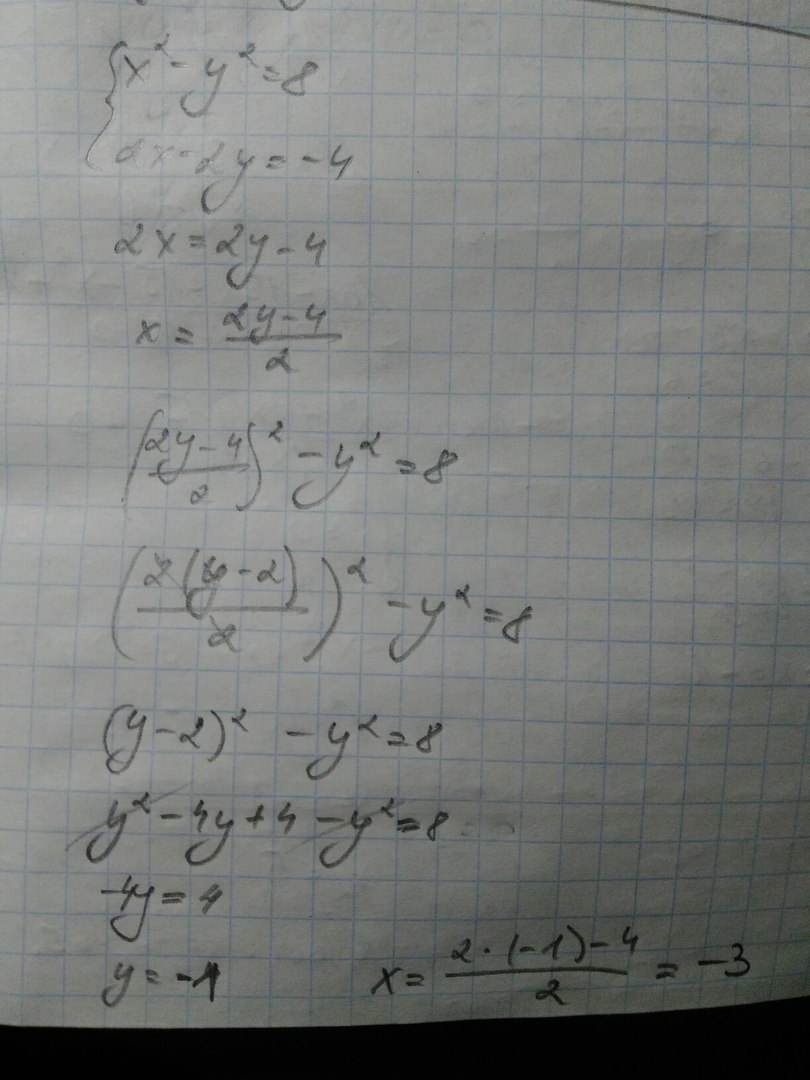 {x² - y² = 8
2x - 2y = -4
2x = 2y - 4
x = (2y - 4)/2
((2y - 4)/2)² - y² = 8
(2(y - 2)/2)² - y² = 8
(y - 2)² - y² = 8
y² - 4y + 4 - y² = 8
-4y = 4
y = -1 x = (2·(-1) - 4)/2 = -3